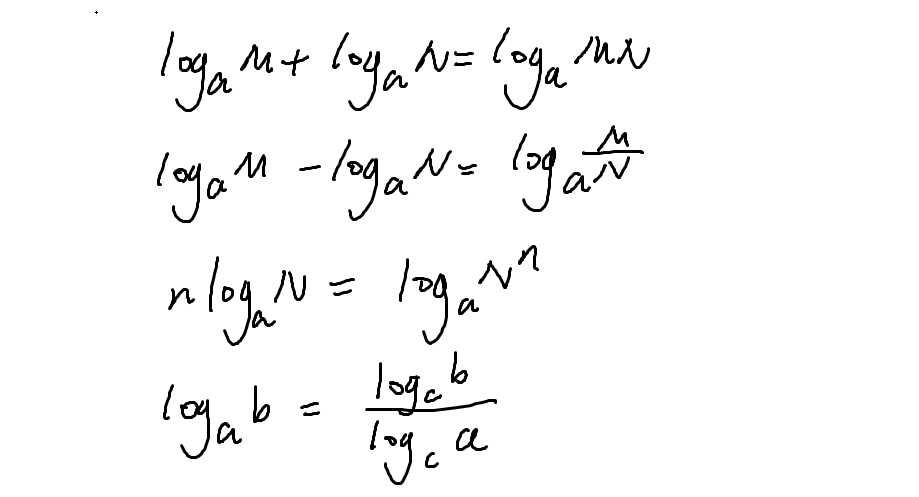 log_a M + log_a N = log_a MN
log_a M - log_a N = log_a \frac{M}{N}
n log_a N = log_a N^n
log_a b = \frac{log_c b}{log_c a}